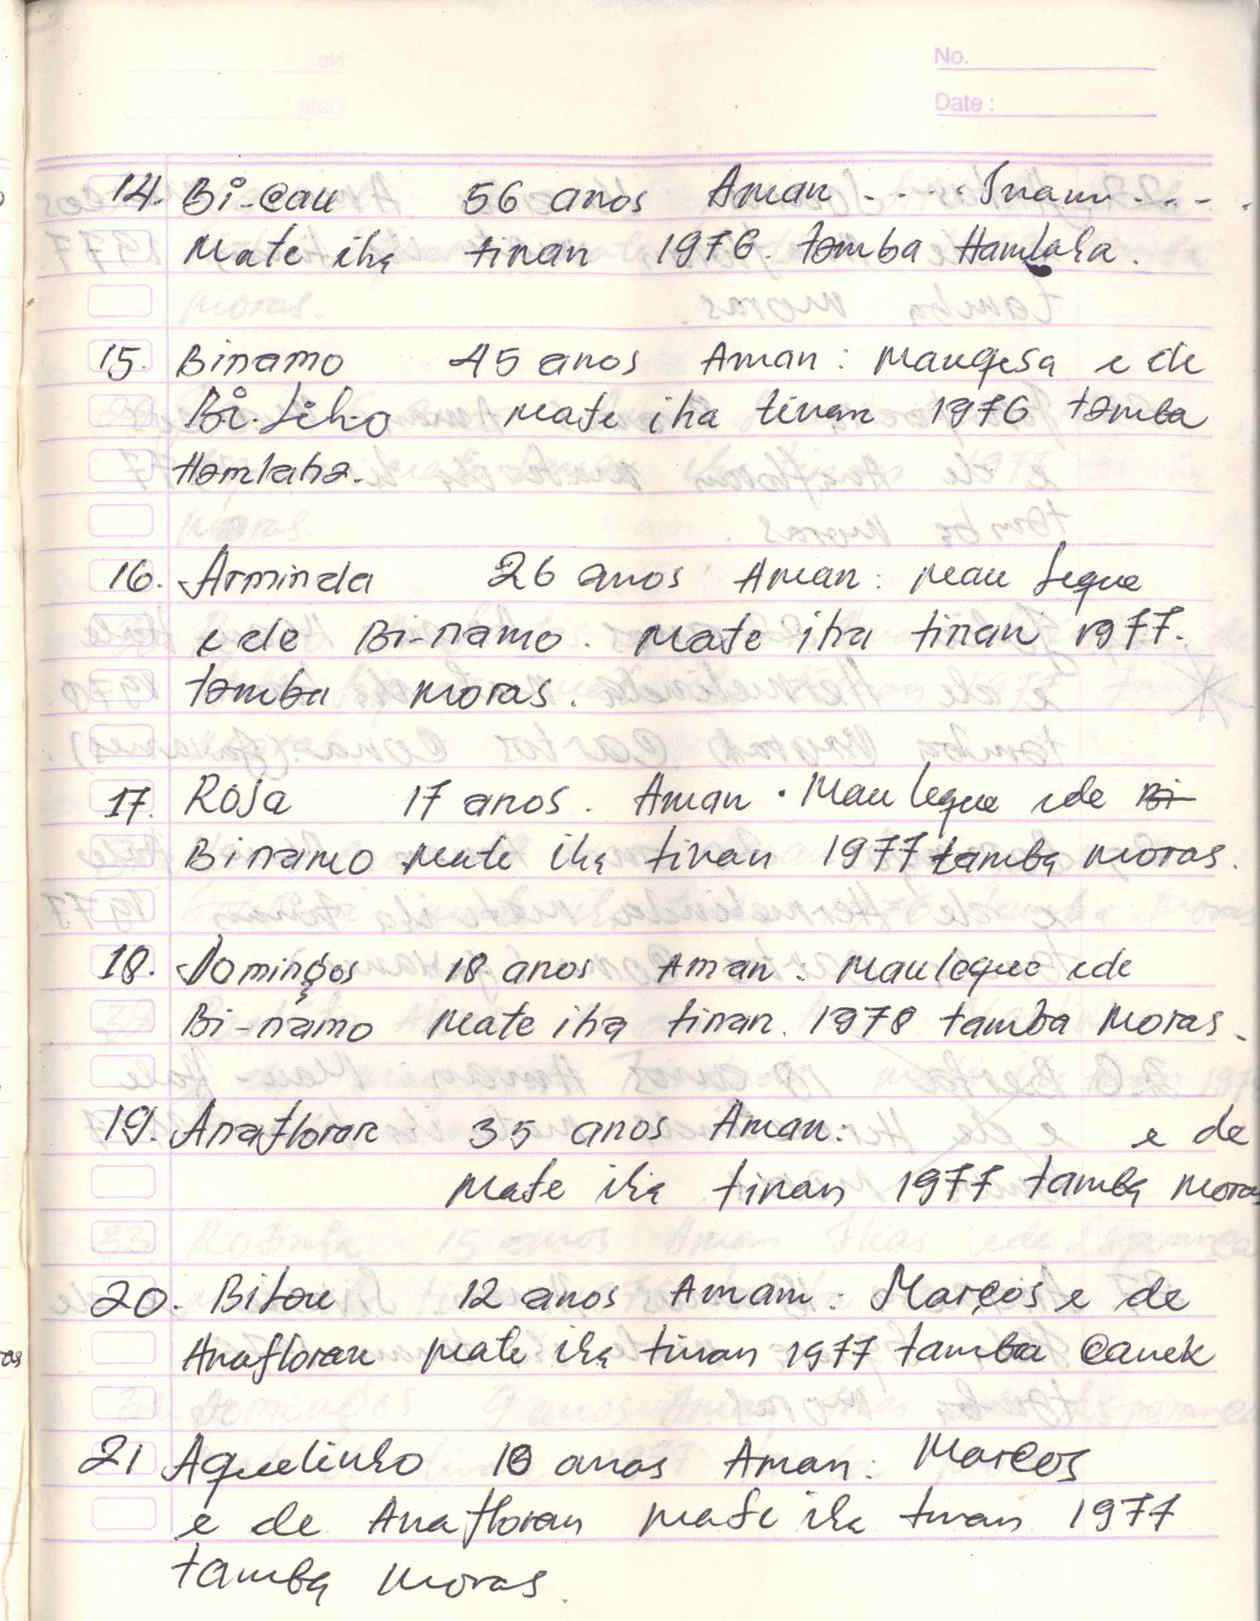 No.
Date :
14. Bi-Cau 56 anos Aman .... Inam ....
Mate iha tinan 1976. tamba Hamlaha.
15. Binamo 45 anos Aman : Mauqesa e de
Bi-Liho Mate iha tinan 1976 tamba
Hamlaha.
16. Arminda 26 anos Aman : Mau Leque
e de Bi-namo. Mate iha tinan 1977.
tamba moras.
17. Rosa 17 anos. Aman . Mau leque e de Bi
Binamo Mate iha tinan 1977 tamba moras.
18. Domingos 18 anos Aman : Mauleque e de
Bi-namo Mate iha tinan. 1978 tamba Moras.
19. Anafloran 35 anos Aman: e de
Mate iha tinan 1977 tamba moras
20. 12 anos Amam : Marcos e de
Anafloran Mate iha tinan 1977 tamba Canek
21 Aquelinho 18 anos Aman : Marcos
e de Anafloran Mate iha tinan 1977
tamba Moras.